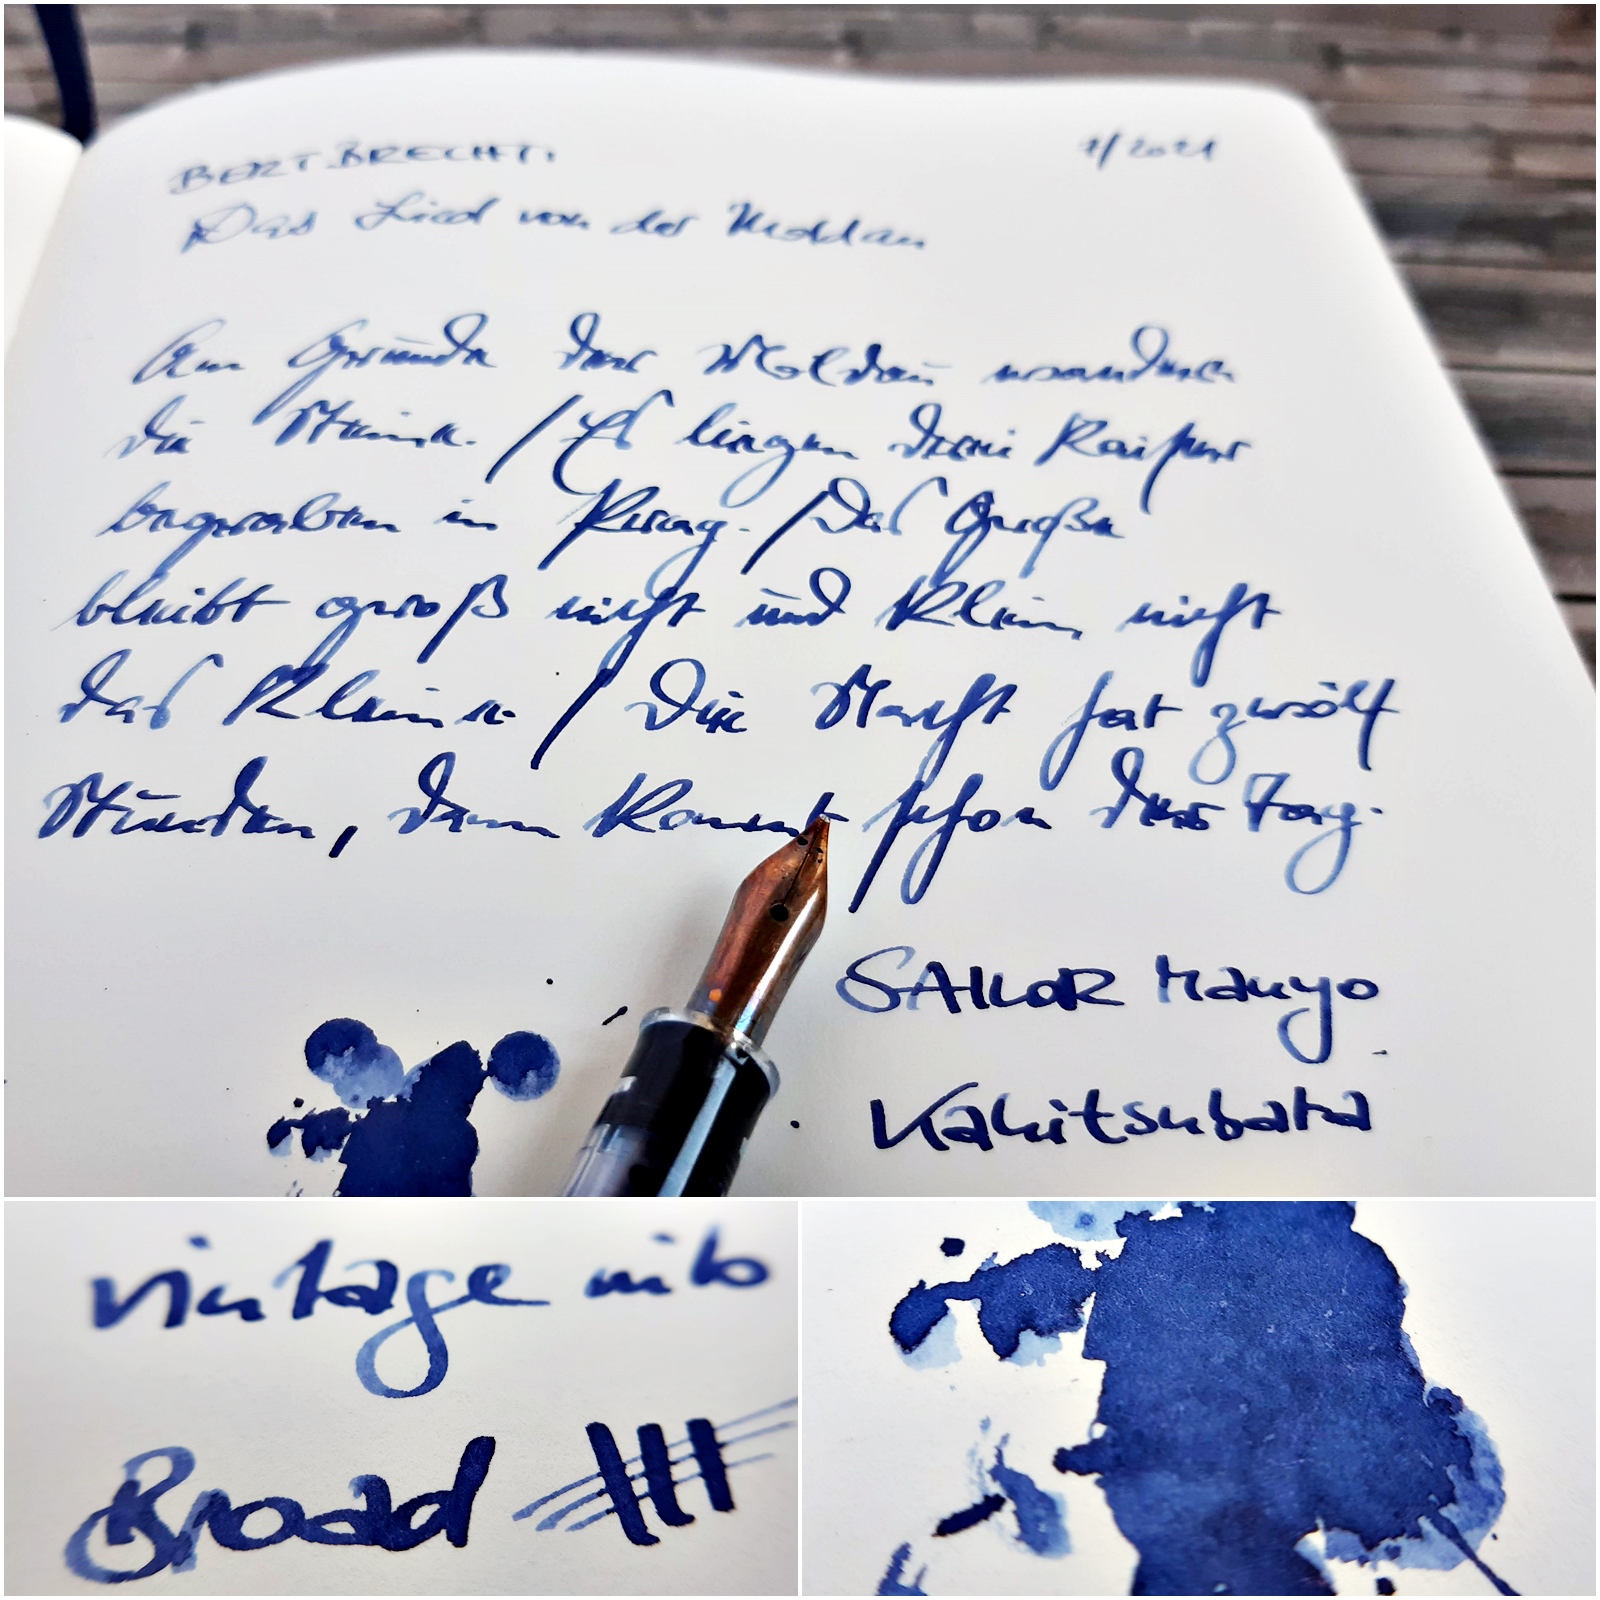 BERT BRECHT:
7/2021
Das Lied von der Moldau
Am Grunde der Moldau wandern
die Steine. / Es liegen drei Kaiser
begraben in Prag. / Das Große
bleibt groß nicht und klein nicht
das Kleine / Die Nacht hat zwölf
Stunden, dann kommt schon der Tag.
SAILOR Manyo
Kakitsubata
vintage nib
Broad